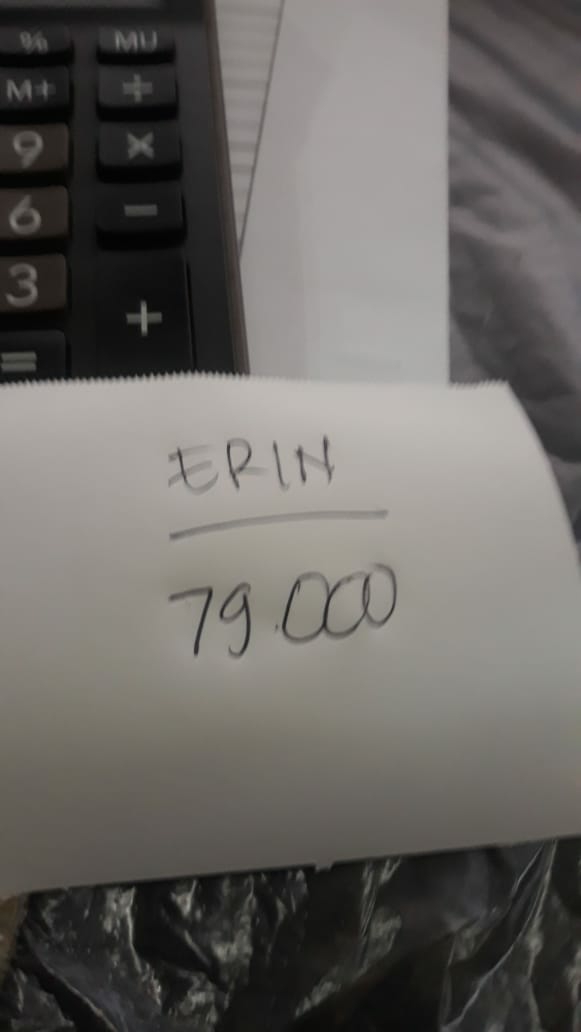 % MU
M+ ÷
9 ×
6 −
3 +
=
ERIN
79.000